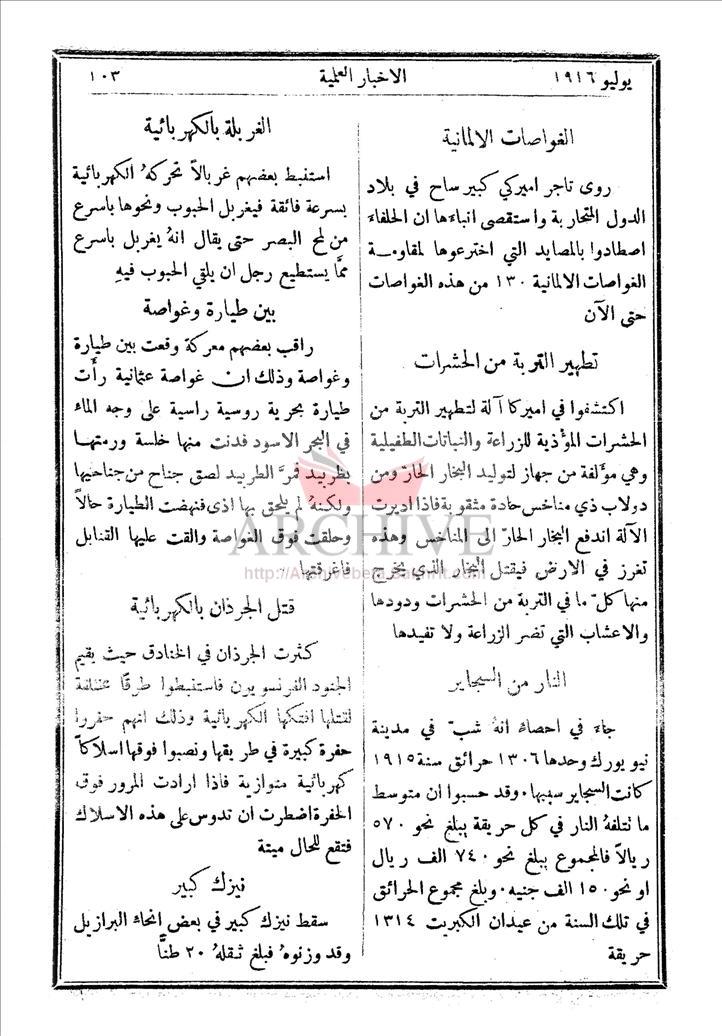 يوليو ١٩١٦
الاخبار العلمية
١٠٣
الغواصات الالمانية
روى تاجر اميركي كبير ساح في بلاد
الدول المتحاربة واستقصى انباءها ان الحلفاء
اصطادوا بالمصايد التي اخترعوها لمقاومة
الغواصات الالمانية ١٣٠ من هذه الغواصات
حتى الآن
تطهير التربة من الحشرات
اكتشفوا في اميركا آلة لتطهير التربة من
الحشرات المؤذية للزراعة والنباتات الطفيلية
وهي مؤلفة من جهاز لتوليد البخار الحارّ ومن
دولاب ذي مناخس حادة مثقوبة فاذا اديرت
الآلة اندفع البخار الحارّ الى المناخس وهذه
تغرز في الارض فيقتل البخار الذي يخرج
منها كلّ ما في التربة من الحشرات ودودها
والاعشاب التي تضر الزراعة ولا تفيدها
النار من السيجاير
جاء في احصاء انهُ شبّ في مدينة
نيويورك وحدها ١٣٠٦ حرائق سنة ١٩١٥
كانت السجاير سببها. وقد حسبوا ان متوسط
ما تتلفهُ النار في كل حريقة يبلغ نحو ٥٧٠
ريالاً فالمجموع يبلغ نحو ٧٤٠ الف ريال
او نحو ١٥٠ الف جنيه. وبلغ مجموع الحرائق
في تلك السنة من عيدان الكبريت ١٣١٤
حريقة
الغربلة بالكهربائية
استنبط بعضهم غربالاً تحركهُ الكهربائية
بسرعة فائقة فيغربل الحبوب ونحوها باسرع
من لمح البصر حتى يقال انهُ يغربل باسرع
ممَّا يستطيع رجل ان يلقي الحبوب فيهِ
بين طيارة وغواصة
راقب بعضهم معركة وقعت بين طيارة
وغواصة وذلك ان غواصة عثمانية رأَت
طيارة بحرية روسية راسية على وجه الماء
في البحر الاسود فدنت منها خلسة ورمتها
بطربيد فمرَّ الطربيد لصق جناح من جناحيها
ولكنهُ لم يلحق بها اذى فنهضت الطيارة حالاً
وحلقت فوق الغواصة والقت عليها القنابل
فاغرقتها
قتل الجرذان بالكهربائية
كثرت الجرذان في الخنادق حيث يقيم
الجنود الفرنسويون فاستنبطوا طرقاً مختلفة
لقتلها افتكها الكهربائية وذلك انهم حفروا
حفرة كبيرة في طريقها ونصبوا فوقها اسلاكاً
كهربائية متوازية فاذا ارادت المرور فوق
الحفرة اضطرت ان تدوس على هذه الاسلاك
فتقع للحال ميتة
نيزك كبير
سقط نيزك كبير في بعض انحاء البرازيل
وقد وزنوهُ فبلغ ثقلهُ ٢٠ طنًّا
ARCHIVE